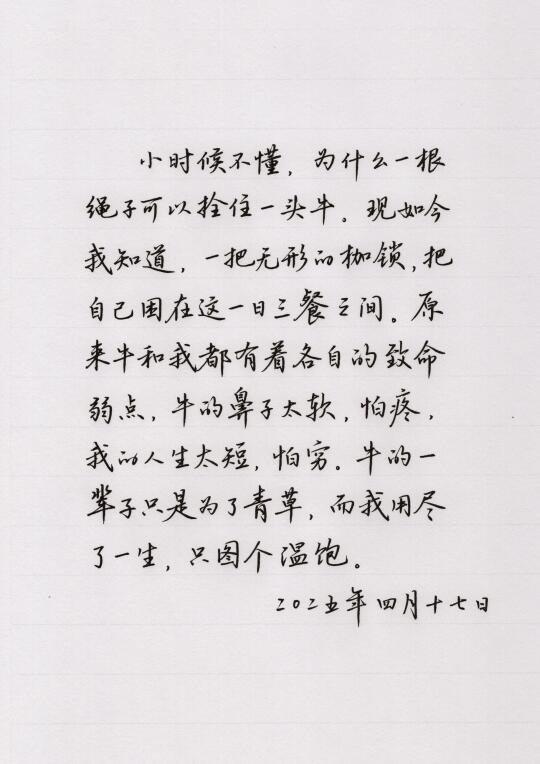 小时候不懂，为什么一根
绳子可以拴住一头牛。现如今
我知道，一把无形的枷锁，把
自己困在这一日三餐之间。原
来牛和我都有着各自的致命
弱点，牛的鼻子太软，怕疼，
我的人生太短，怕穷。牛的一
辈子只是为了青草，而我用尽
了一生，只图个温饱。
二〇二五年四月十七日